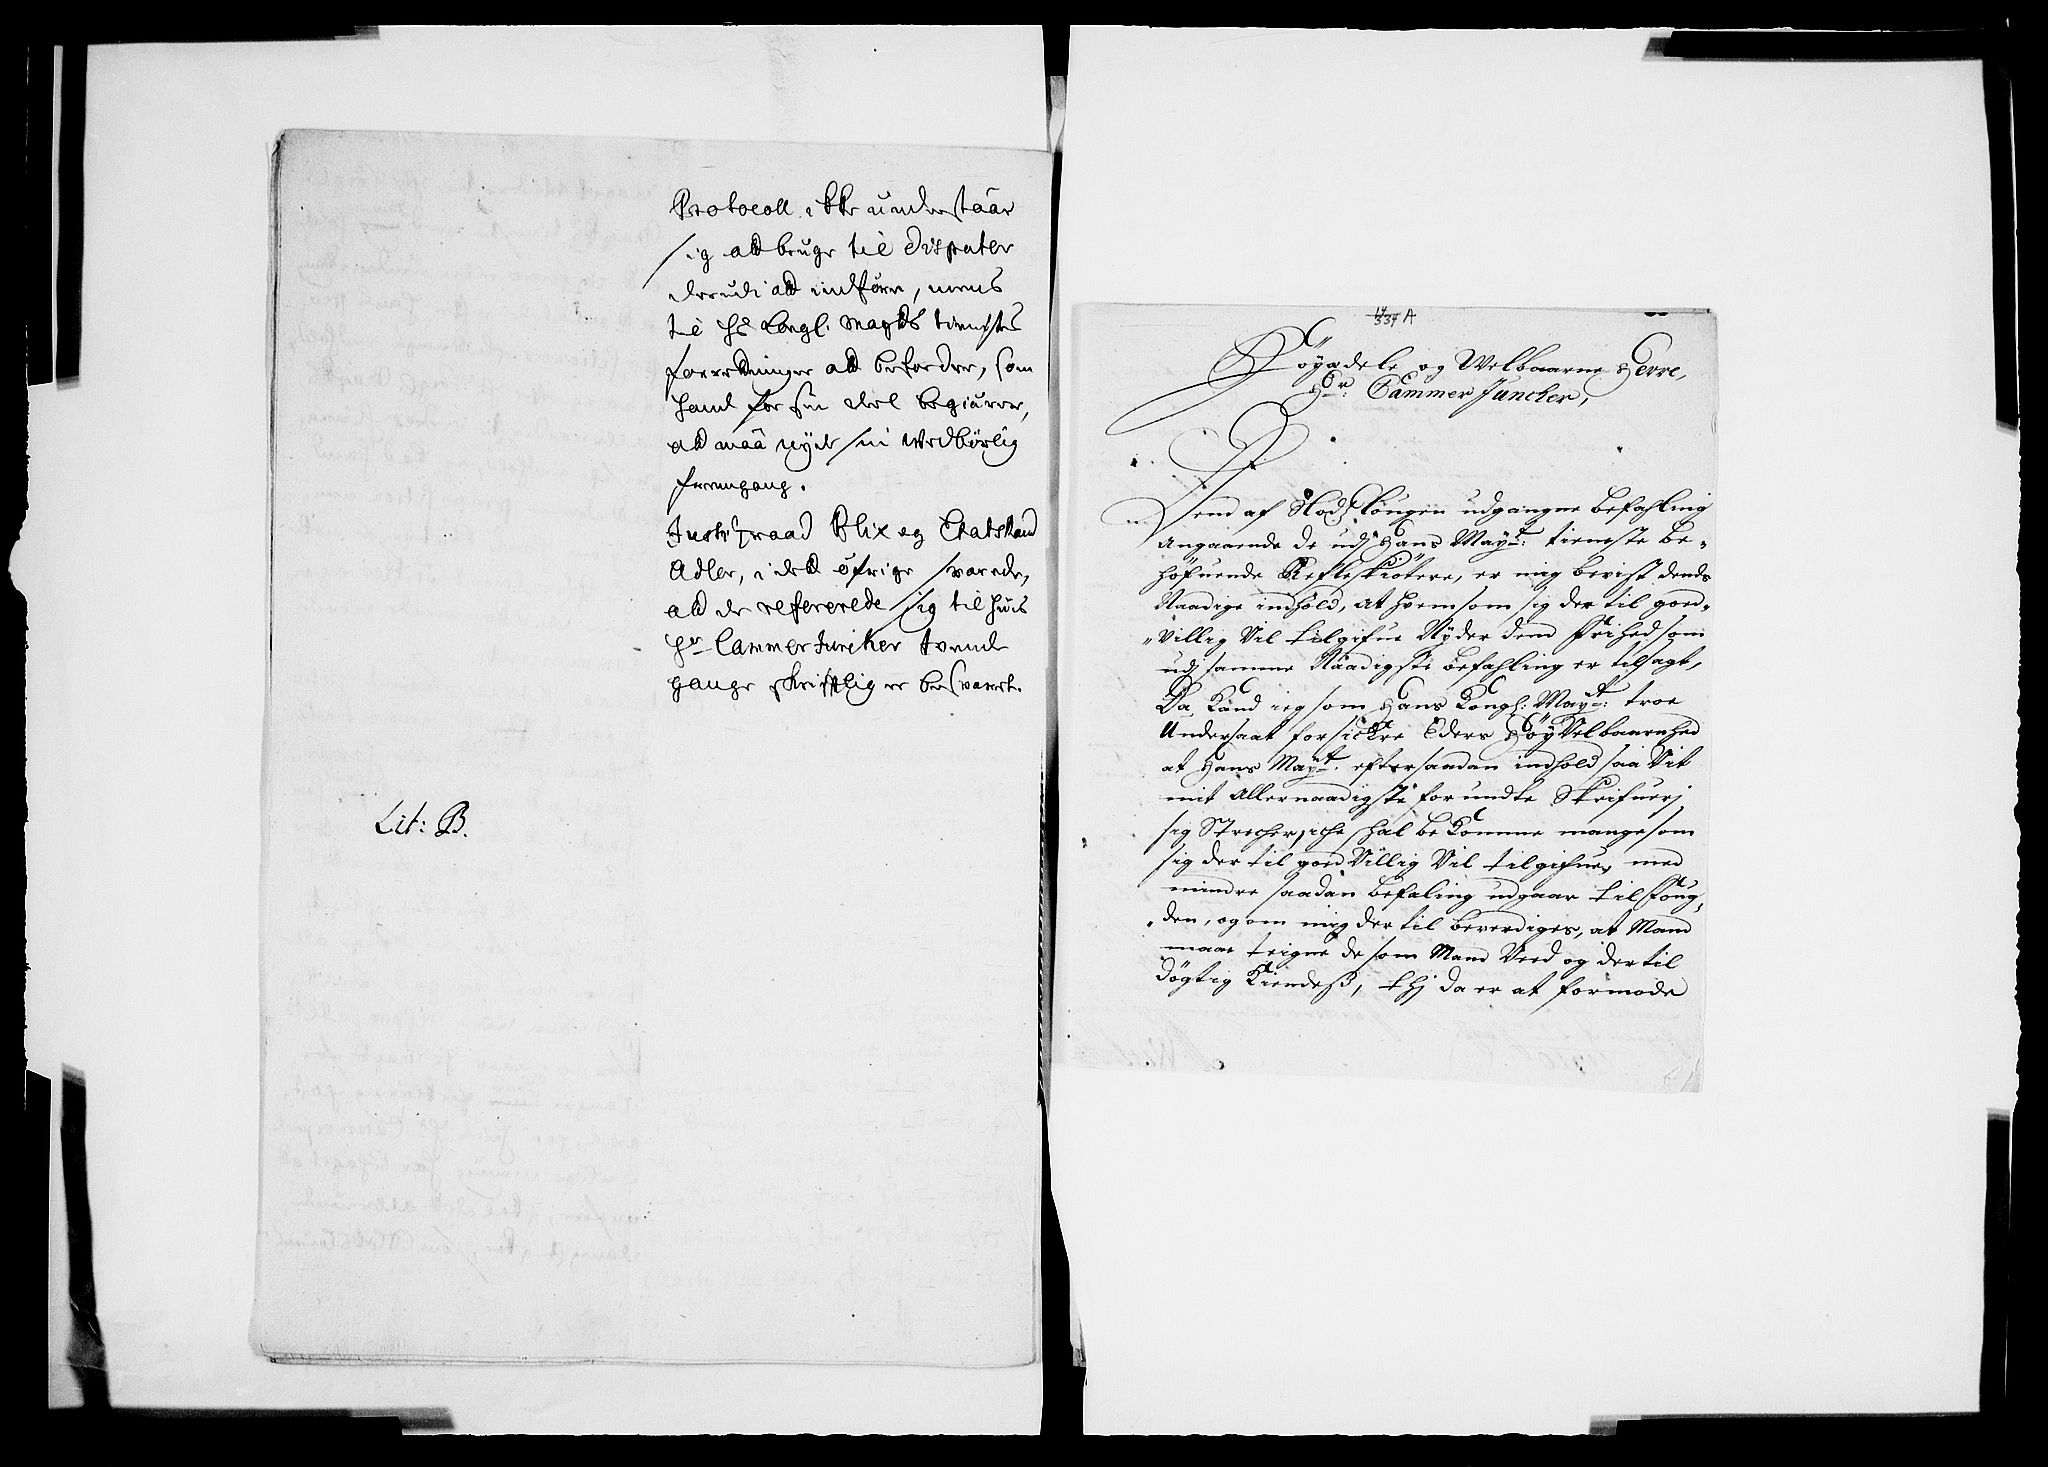 Protocoll ikke understaar
sig at bruge til Disputer
derudi at indføre, mens
til hs Kongl: Mayts tienistes
forretninger at befordre, som
hand for sin deel begiærer,
at maa nyde sin Wedbørlig
fremgang.
Justitzraad Blix og Etatsraad
Adler, i det øfrige svarede,
at de refererede sig til huis
Hr Cammer Juncker tvende
gange skrifftlig er besvaret.
Lit: B.
17
337 A
Høyædele og Welbaarne Herre,
Hr: Cammer Juncker,
Dend af Slodz Lougen udgangne befahling
Angaaende de udj Hans Mayt: tieneste be-
høfuende Refleskiøttere, er mig bevist. dends
Naadige indhold, at hvemsom sig der til goed-
villig Vil tilgifue Nyder dend frihed som
udj samme Naadigste befahling er tilsagt,
Da Kand ieg som Hans Kongl: Mayt: troe
Undersaat forsickre Eders HøyVelbaarenhed
at Hans Mayt: efter saadan indhold saa Vit
mit Allernaadigste forundte Skrifuerj
sig Strecher, iche skal beKomme mange som
sig der til goed Villig Vil tilgifue, med
mindre saadan befaling udgaar til foug-
den, og om mig der til beverdiges, at Mand
maae teigne de som Mand Veed og der til
døgtig Kiendeß, thj da er at formode